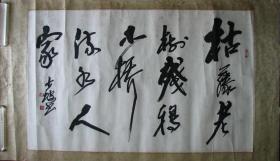 枯藤老
树残鸦
小桥
流水人
家